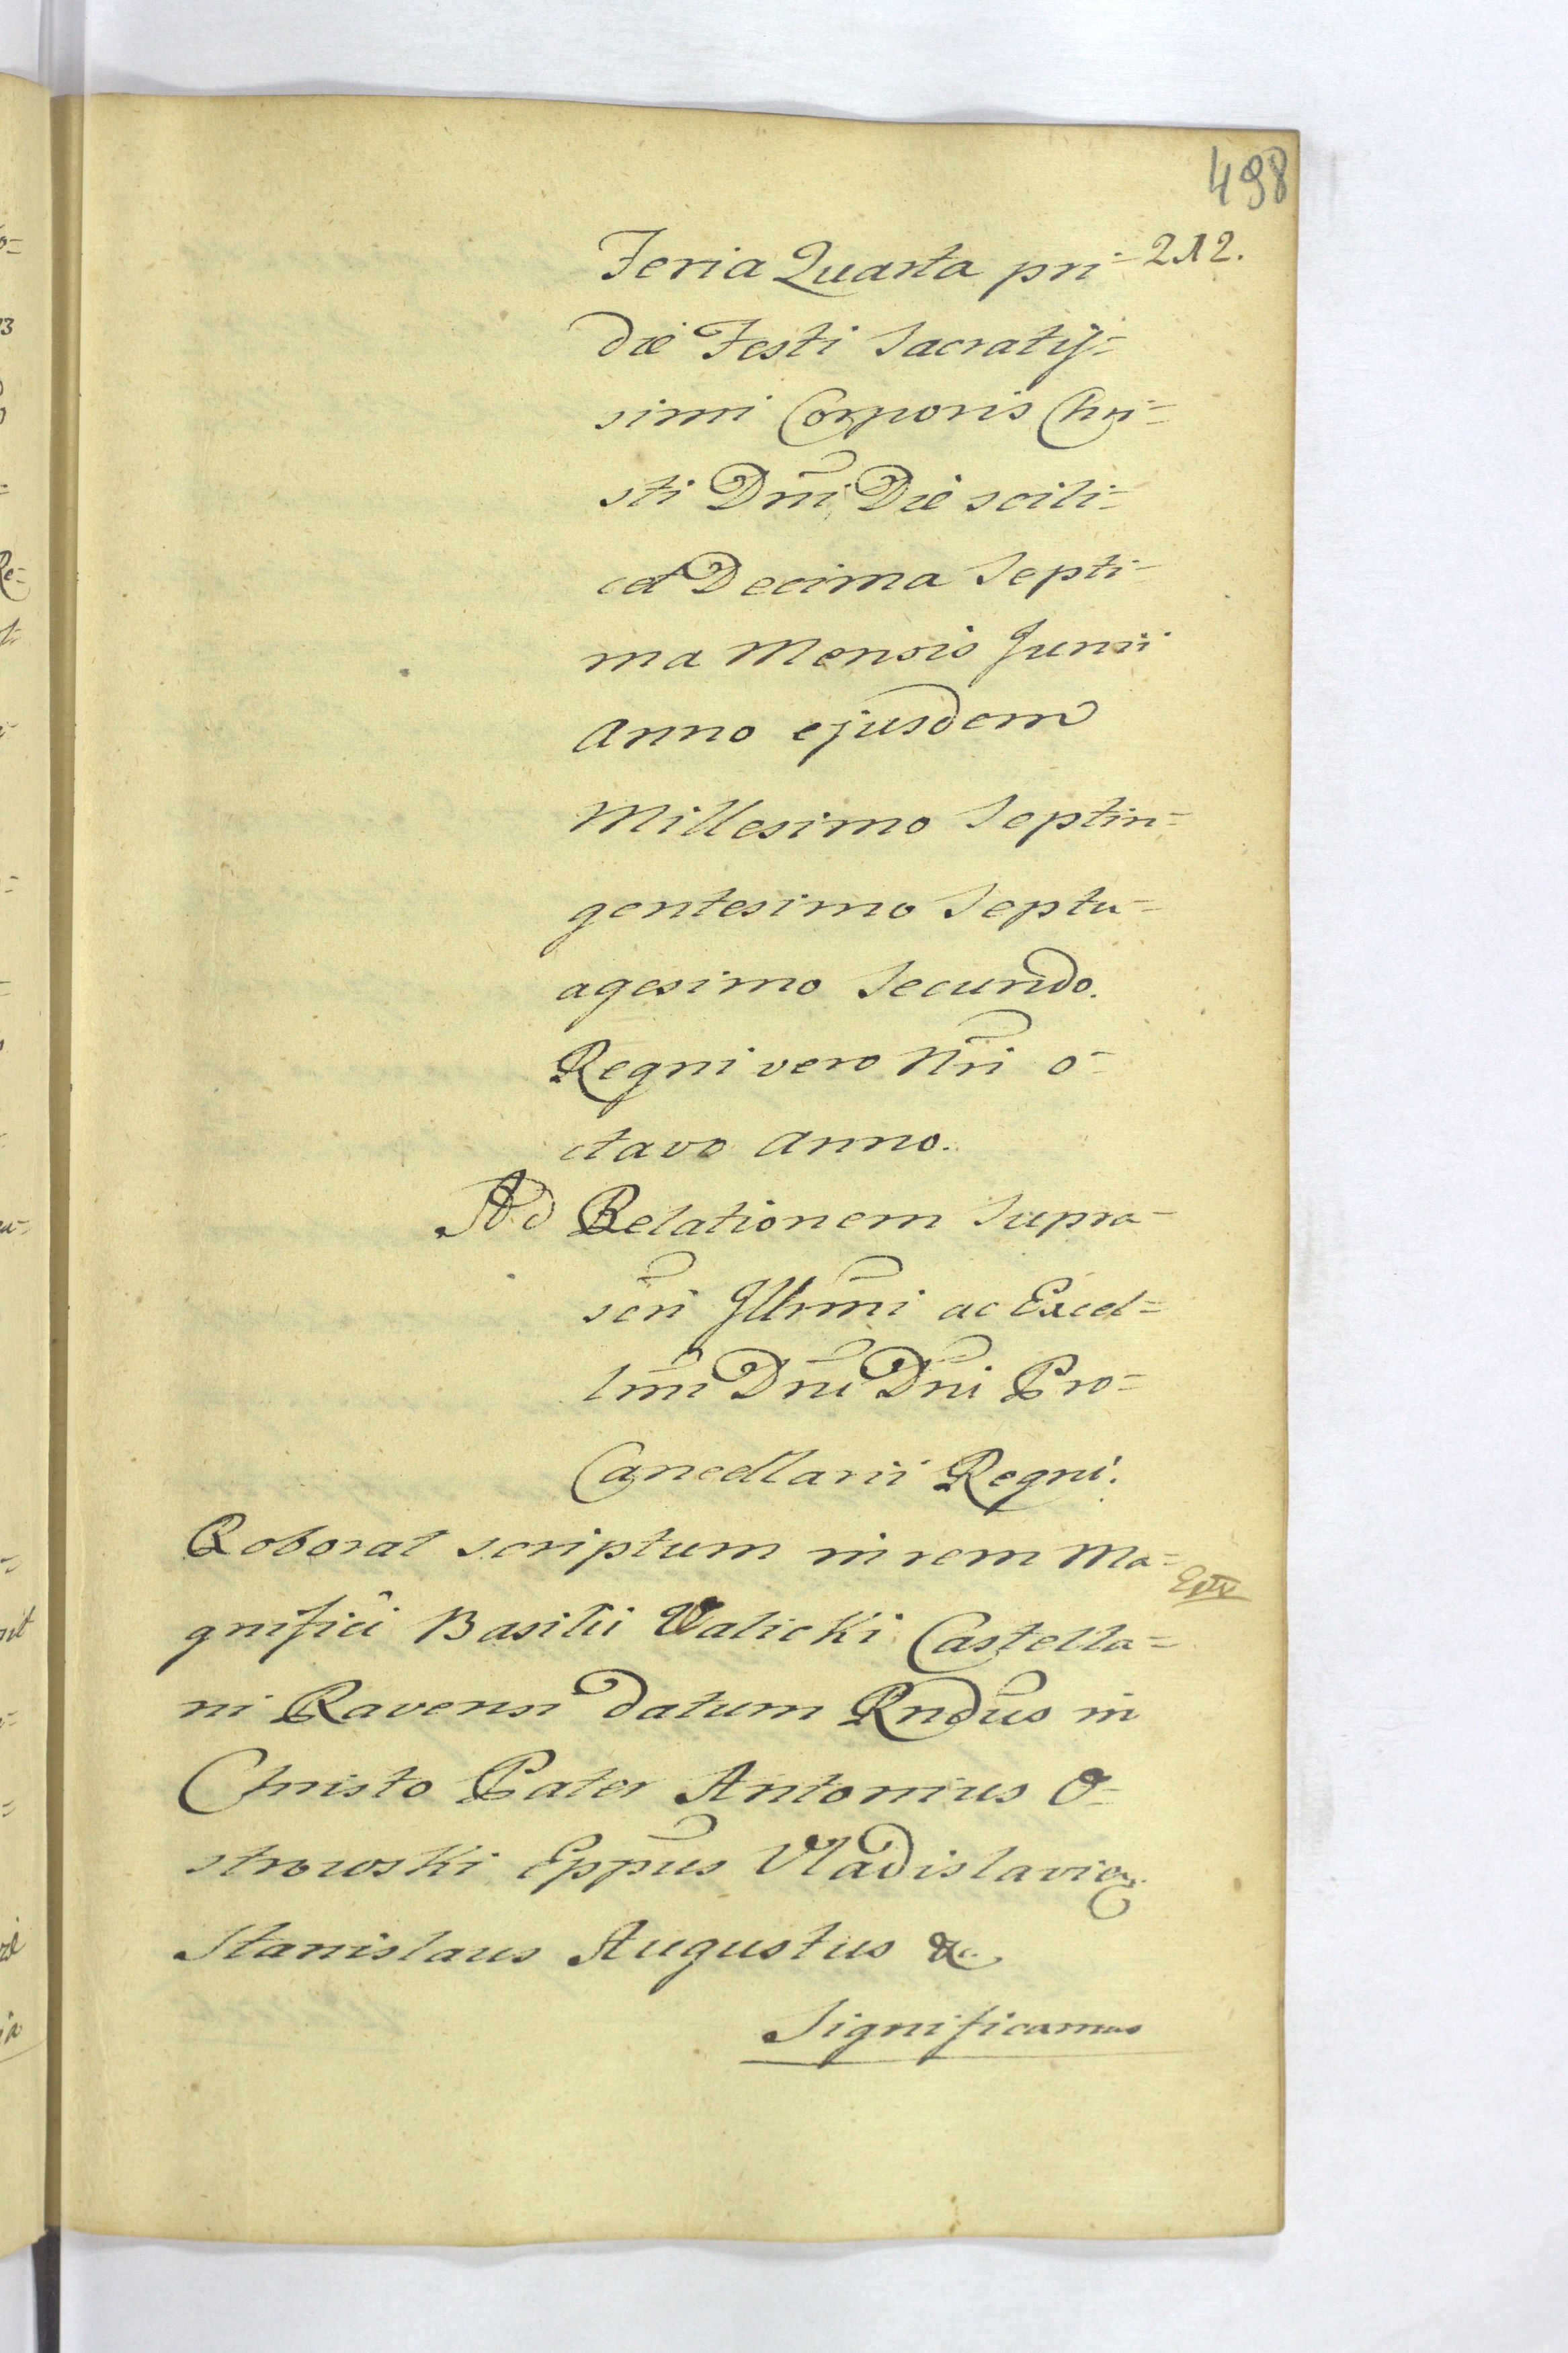 498
Feria Quarta pri= 212.
die Festi Sacratis=
simi Corporis Chri=
sti Dñi Die scili=
cet Decima Septi=
ma Mensis Junii
Anno ejusdem
Millesimo Septin=
gentesimo Septu=
agesimo Secundo.
Regni vero Nri o=
ctavo Anno.
Ad Relationem Supra=
scri Jllrmi ac Excel=
lmi Dñi Dñi Pro=
Cancellarii Regni.
Roborat scriptum in rem Ma=
gnifici Basilii Walicki Castella=
ni Ravensi datum Rndus in
Christo Pater Antonius O=
strowski Eppus Vladislavien.
Stanislaus Augustus &c
Significamus